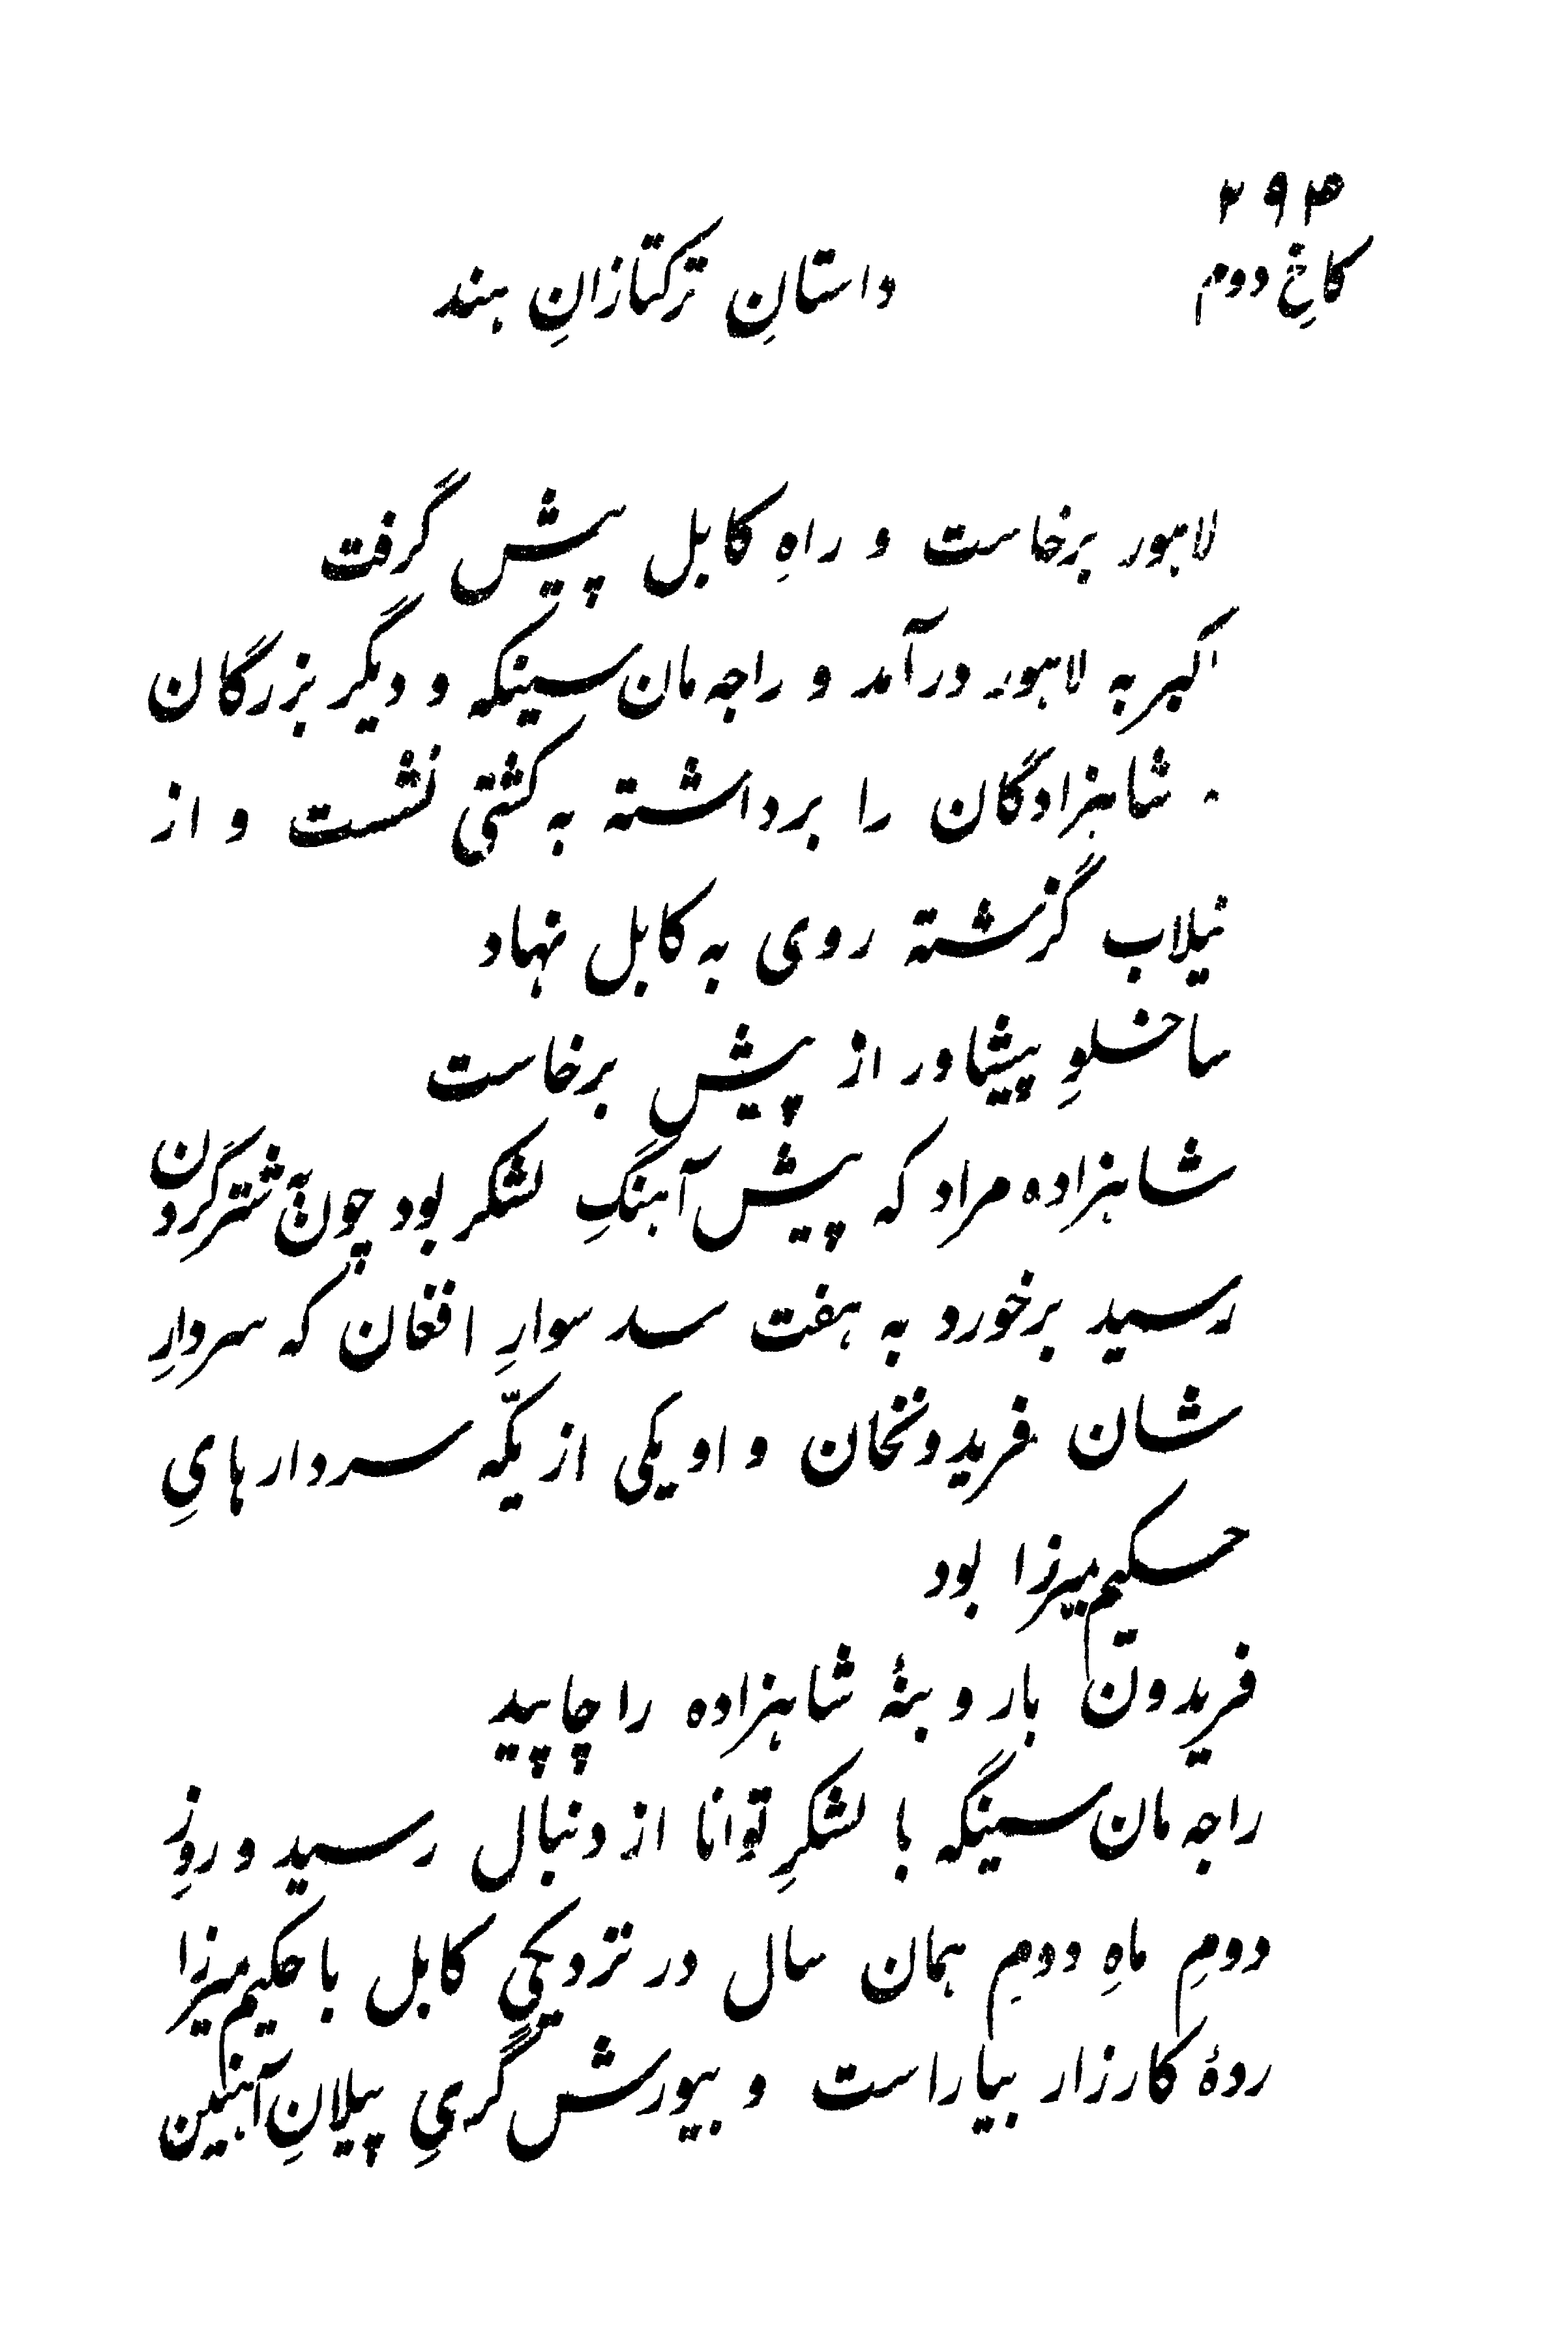 ۲۹۴
کاخِ دوم
داستانِ ترکتازانِ هند
لاهور برخاست و راهِ کابل پیش گرفت
اکبر به لاهور درآمد و راجه مان سینگه و دیگر بزرگان
شاهزادگان را برداشته به کشتی نشست و از
نیلاب گزشته روی به کابل نهاد
ساخلوِ پیشاور از پیش برخاست
شاهزاده مراد که پیش آهنگِ لشکر بود چون به شترگردن
رسید برخورد به هفت سد سوارِ افغان که سردارِ
شان فریدونخان و او یکی از یکّه سردارهایِ
حکیم میرزا بود
فریدون بار و بنهٔ شاهزاده را چاپید
راجه مان سینگه با لشکرِ توانا از دنبال رسید و روزِ
دومِ ماهِ دومِ همان سال در نزدیکیِ کابل با حکیم میرزا
ردهٔ کارزار بیاراست و بیورش گریِ پیلانِ آهنین